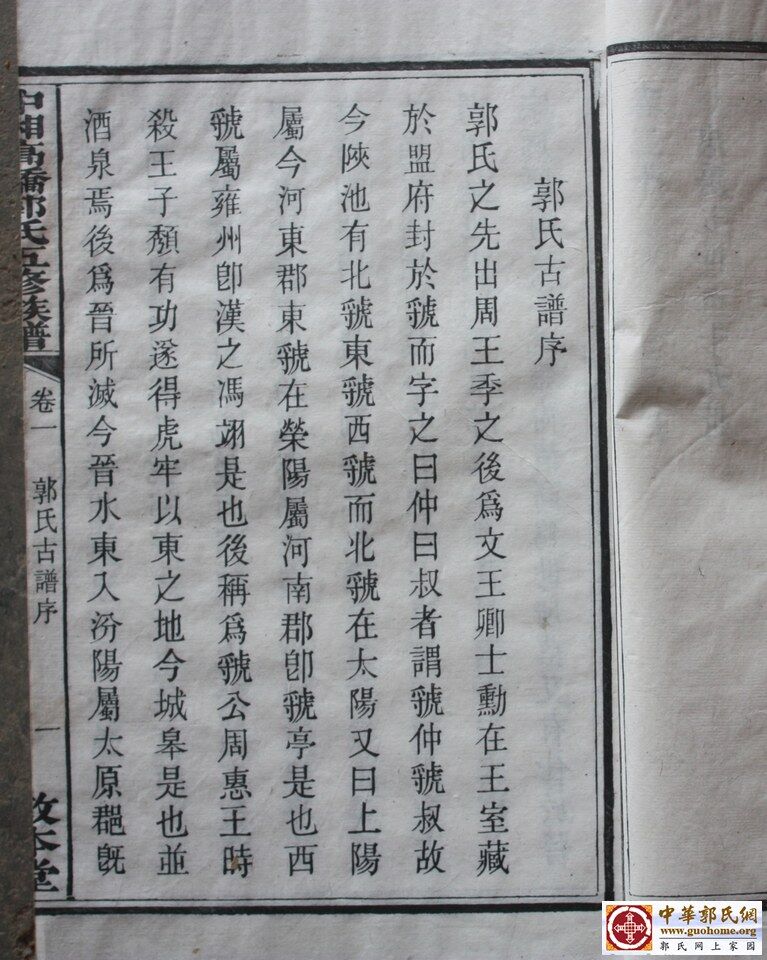 郭氏古譜序
郭氏之先出周王季之後爲文王卿士勳在王室藏
於盟府封於虢而字之曰仲曰叔者謂虢仲虢叔故
今陝池有北虢東虢西虢而北虢在太陽又曰上陽
屬今河東郡東虢在榮陽屬河南郡卽虢亭是也西
虢屬雍州卽漢之馮翊是也後稱爲虢公周惠王時
殺王子頽有功遂得虎牢以東之地今城皋是也並
酒泉焉後爲晉所滅今晉水東入汾陽屬太原郡旣
中湘高橋郭氏五修族譜
卷一
郭氏古譜序
一
敦本堂
中華郭氏網
www.guohome.org
郭氏网上家园